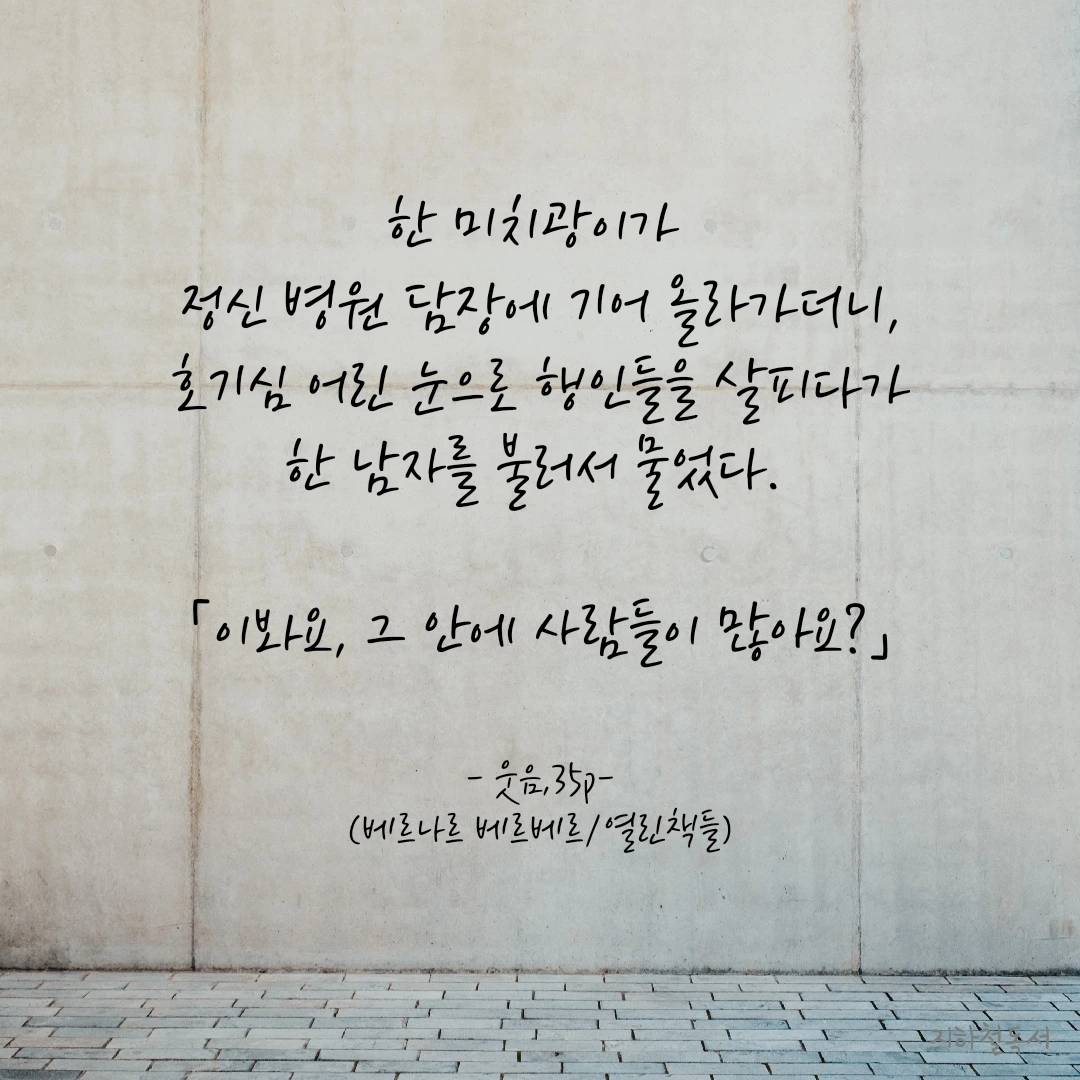 한 미치광이가
정신 병원 담장에 기어 올라가더니,
호기심 어린 눈으로 행인들을 살피다가
한 남자를 불러서 물었다.
「이봐요, 그 안에 사람들이 많아요?」
- 웃음,35p-
(베르나르 베르베르/열린책들)
지하철독서